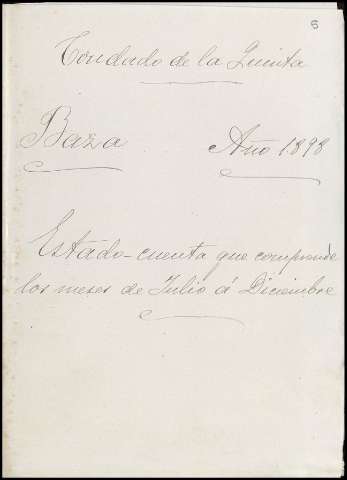 5
Condado de la Quinta
Baza Año 1898
Estado-cuenta que comprende
los meses de Julio á Diciembre